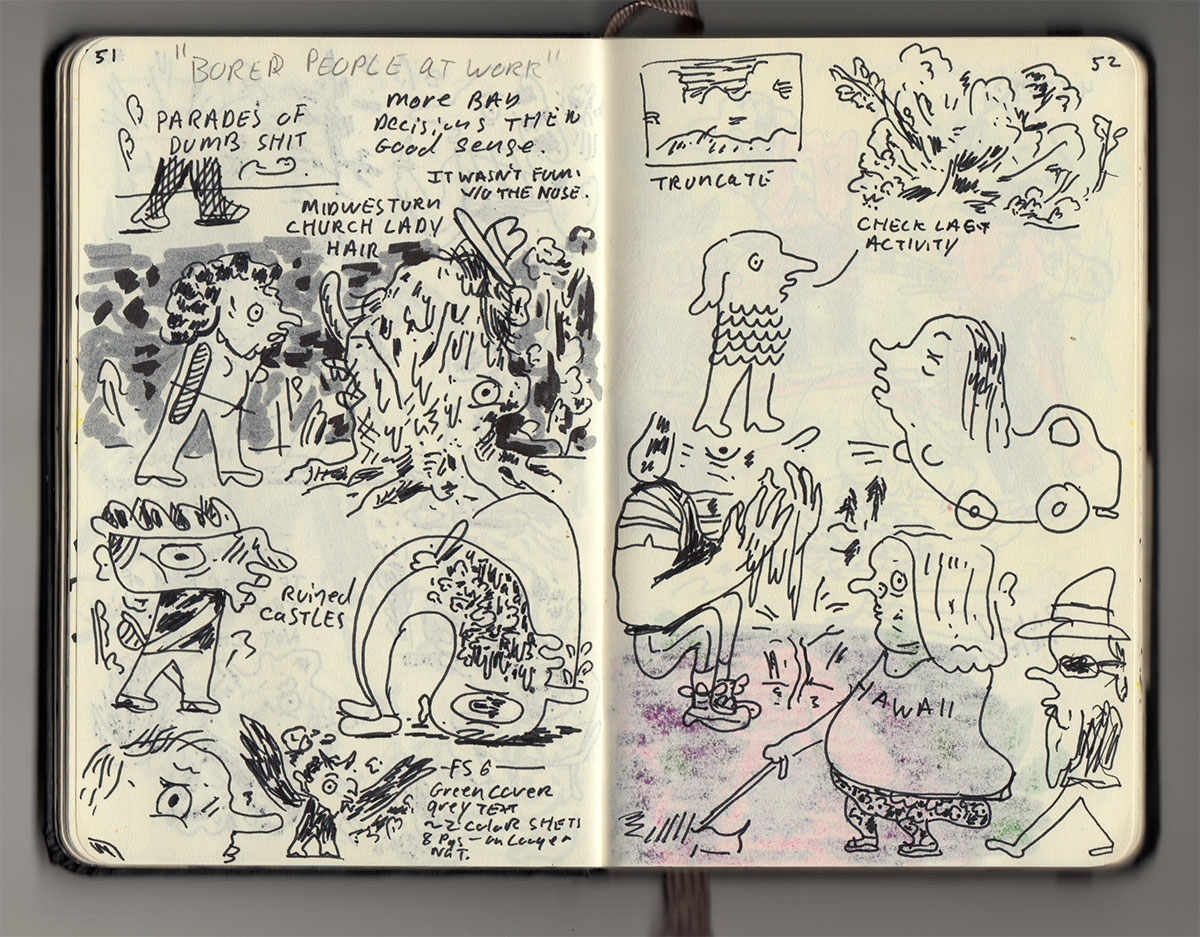 51
"BORED PEOPLE AT WORK"
PARADES OF
DUMB SHIT
MORE BAD
DECISIONS THEN
GOOD SENSE.
IT WASN'T FULL
V/O THE NOSE.
MIDWESTURN
CHURCH LADY
HAIR
RUINED
CASTLES
-FS6-
GREEN COVER
GREY TEXT
~2 COLOR SHETS
8 Pgs - on
NAT.
52
TRUNCATE
CHECK LAST
ACTIVITY
HAWAII